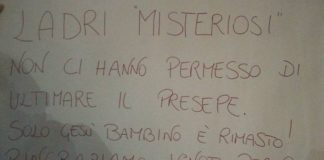 LADRI "MISTERIOSI"
NON CI HANNO PERMESSO DI
ULTIMARE IL PRESEPE.
SOLO GESÙ BAMBINO È RIMASTO!